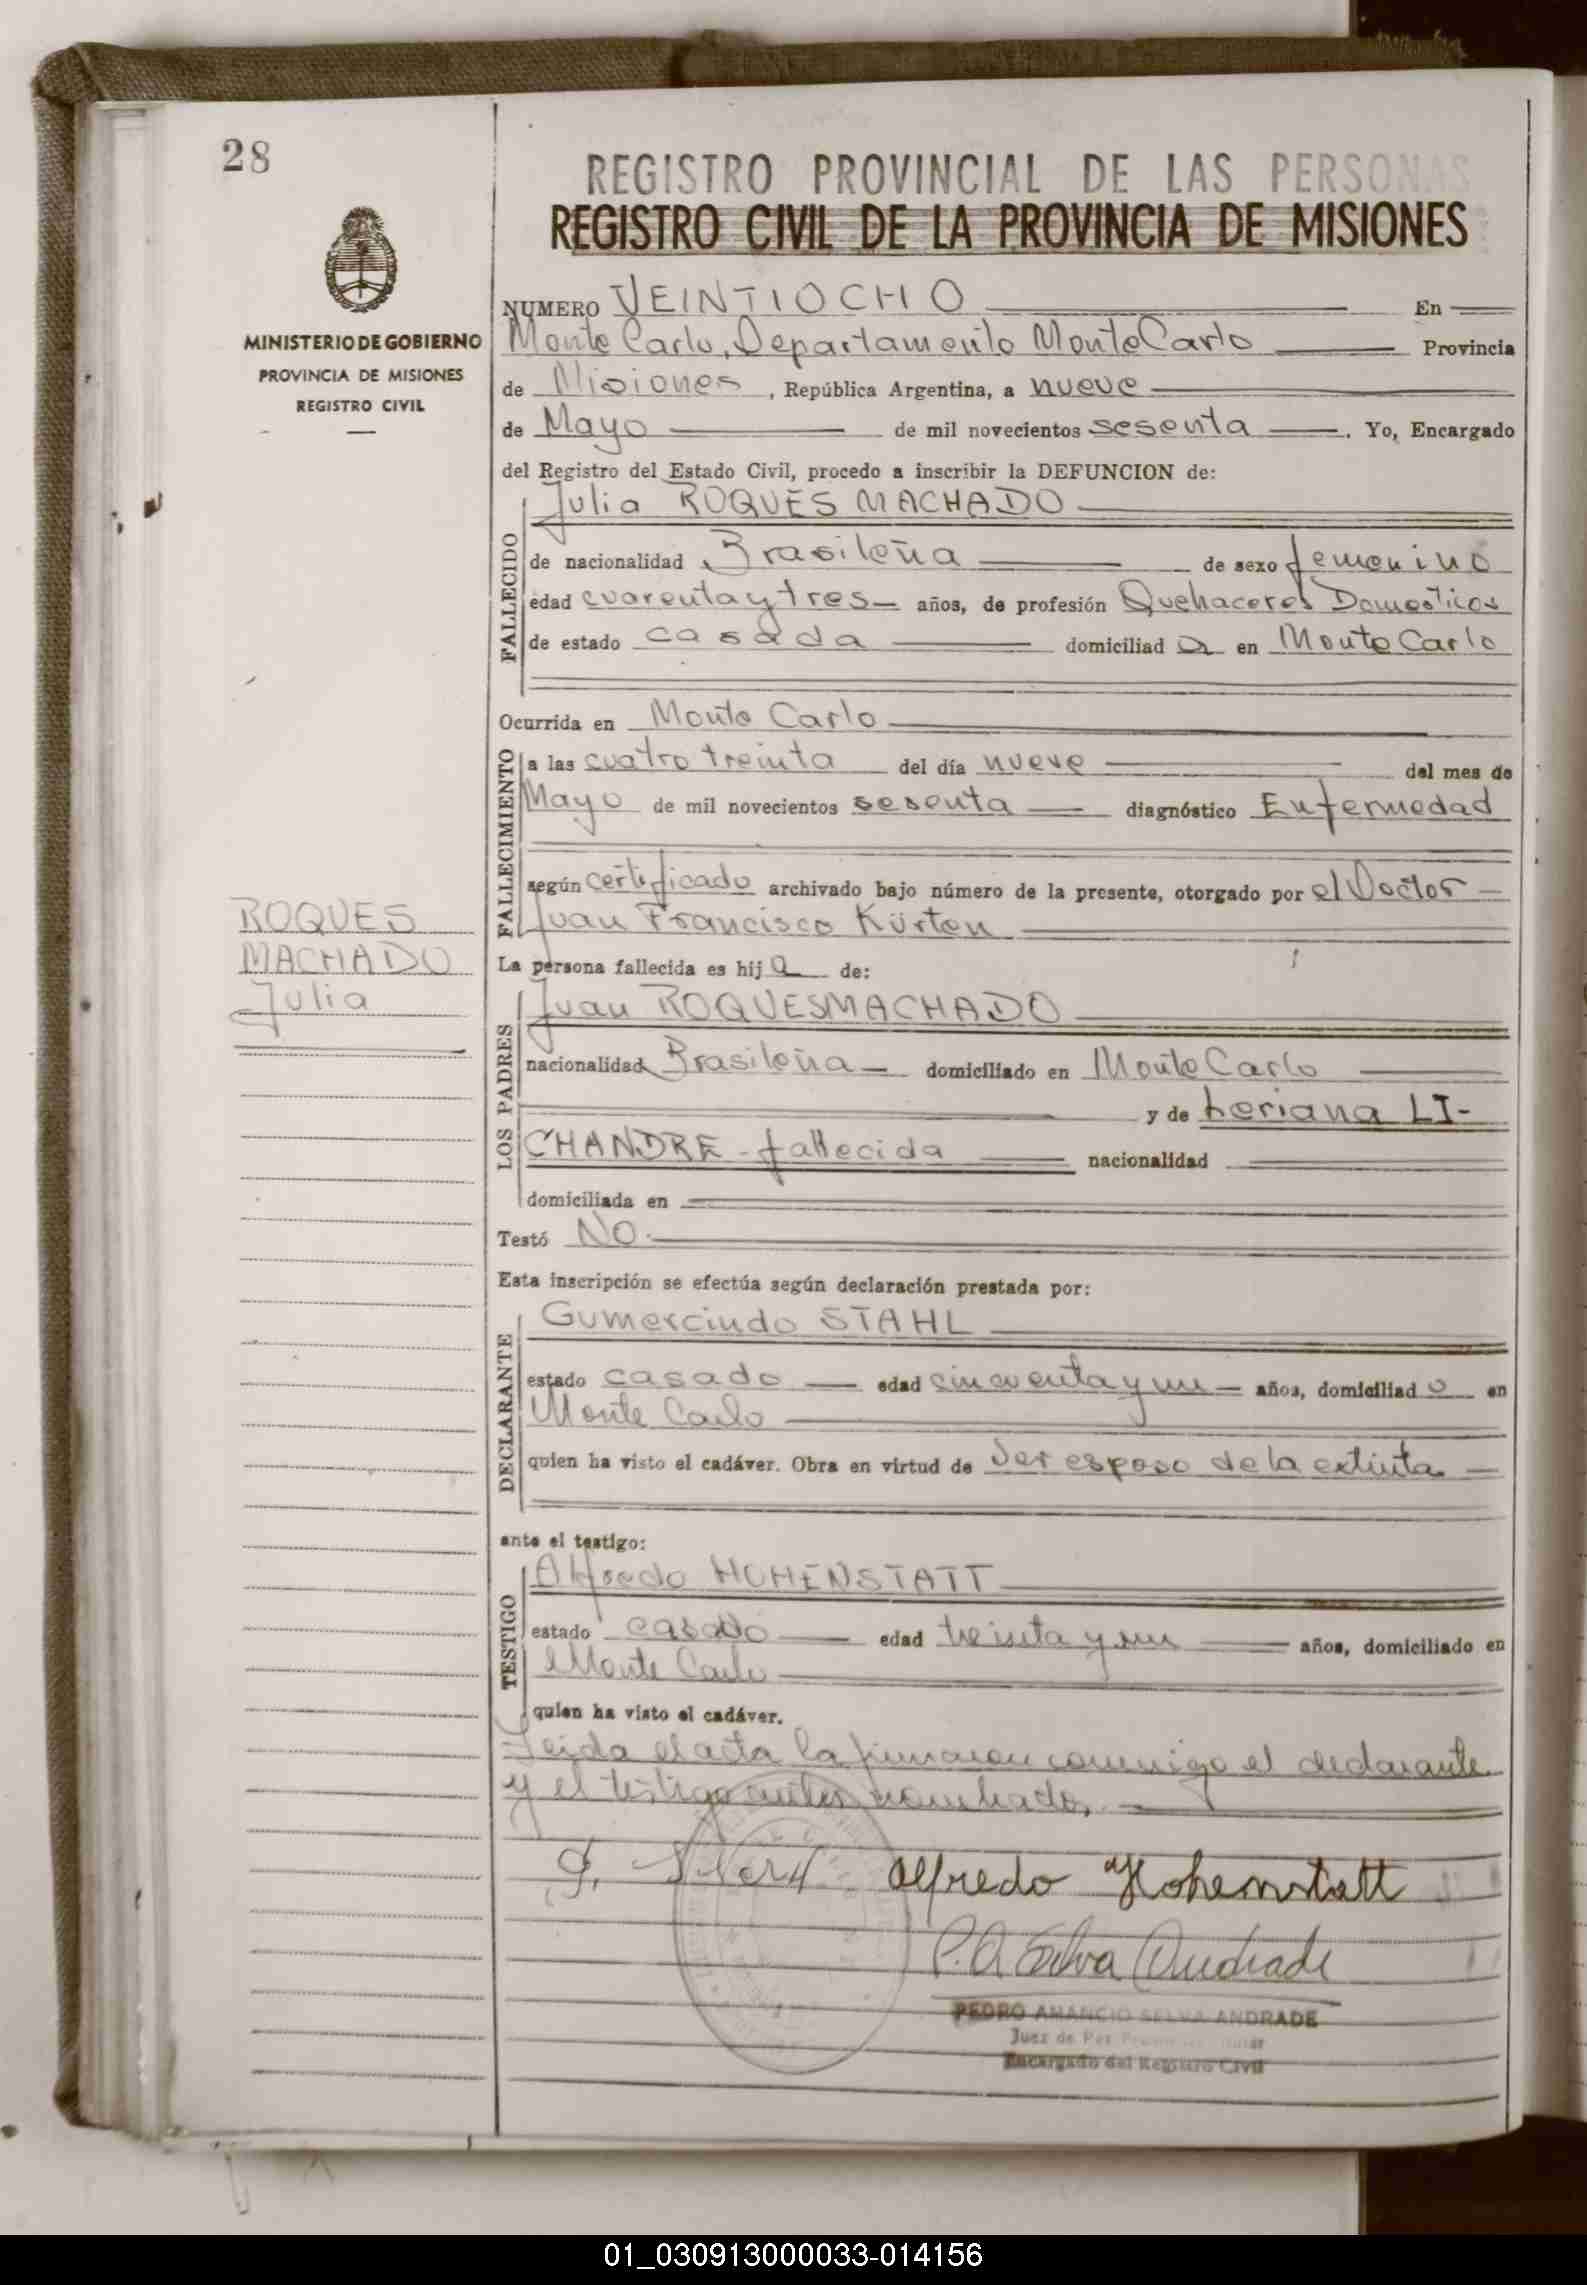 28
REGISTRO PROVINCIAL DE LAS PERSONAS
REGISTRO CIVIL DE LA PROVINCIA DE MISIONES
MINISTERIO DE GOBIERNO
PROVINCIA DE MISIONES
REGISTRO CIVIL
NUMERO VEINTIOCHO En
Monte Carlo, Departamento Monte Carlo Provincia
de Misiones, República Argentina, a nueve
de Mayo de mil novecientos sesenta. Yo, Encargado
del Registro del Estado Civil, procedo a inscribir la DEFUNCION de:
FALLECIDO
Julia ROQUES MACHADO
de nacionalidad Brasileña de sexo femenino
edad cuarenta y tres años, de profesión Quehaceres Domesticos
de estado casada domiciliad a en Monte Carlo
Ocurrida en Monte Carlo
FALLECIMIENTO
a las cuatro treinta del día nueve del mes de
Mayo de mil novecientos sesenta diagnóstico Enfermedad
según certificado archivado bajo número de la presente, otorgado por el Doctor
Juan Francisco Kürten
ROQUES
MACHADO
Julia
La persona fallecida es hij a de:
LOS PADRES
Juan ROQUES MACHADO
nacionalidad Brasileña domiciliado en Monte Carlo
y de Leriana LI-
CHANDRE - fallecida nacionalidad
domiciliada en
Testó NO.
Esta inscripción se efectúa según declaración prestada por:
DECLARANTE
Gumercindo STAHL
estado casado edad cincuenta y un años, domiciliad o en
Monte Carlo
quien ha visto el cadáver. Obra en virtud de ser esposo de la extinta
ante el testigo:
TESTIGO
Alfredo HOHENSTATT
estado casado edad treinta y un años, domiciliado en
Monte Carlo
quien ha visto el cadáver.
Leida el acta la firmaron conmigo el declarante
y el testigo antes nombrado.
Alfredo Hohenstatt
P. A. Selva Andrade
PEDRO AMANCIO SELVA ANDRADE
Juez de Paz
Encargado del Registro Civil
01_030913000033-014156